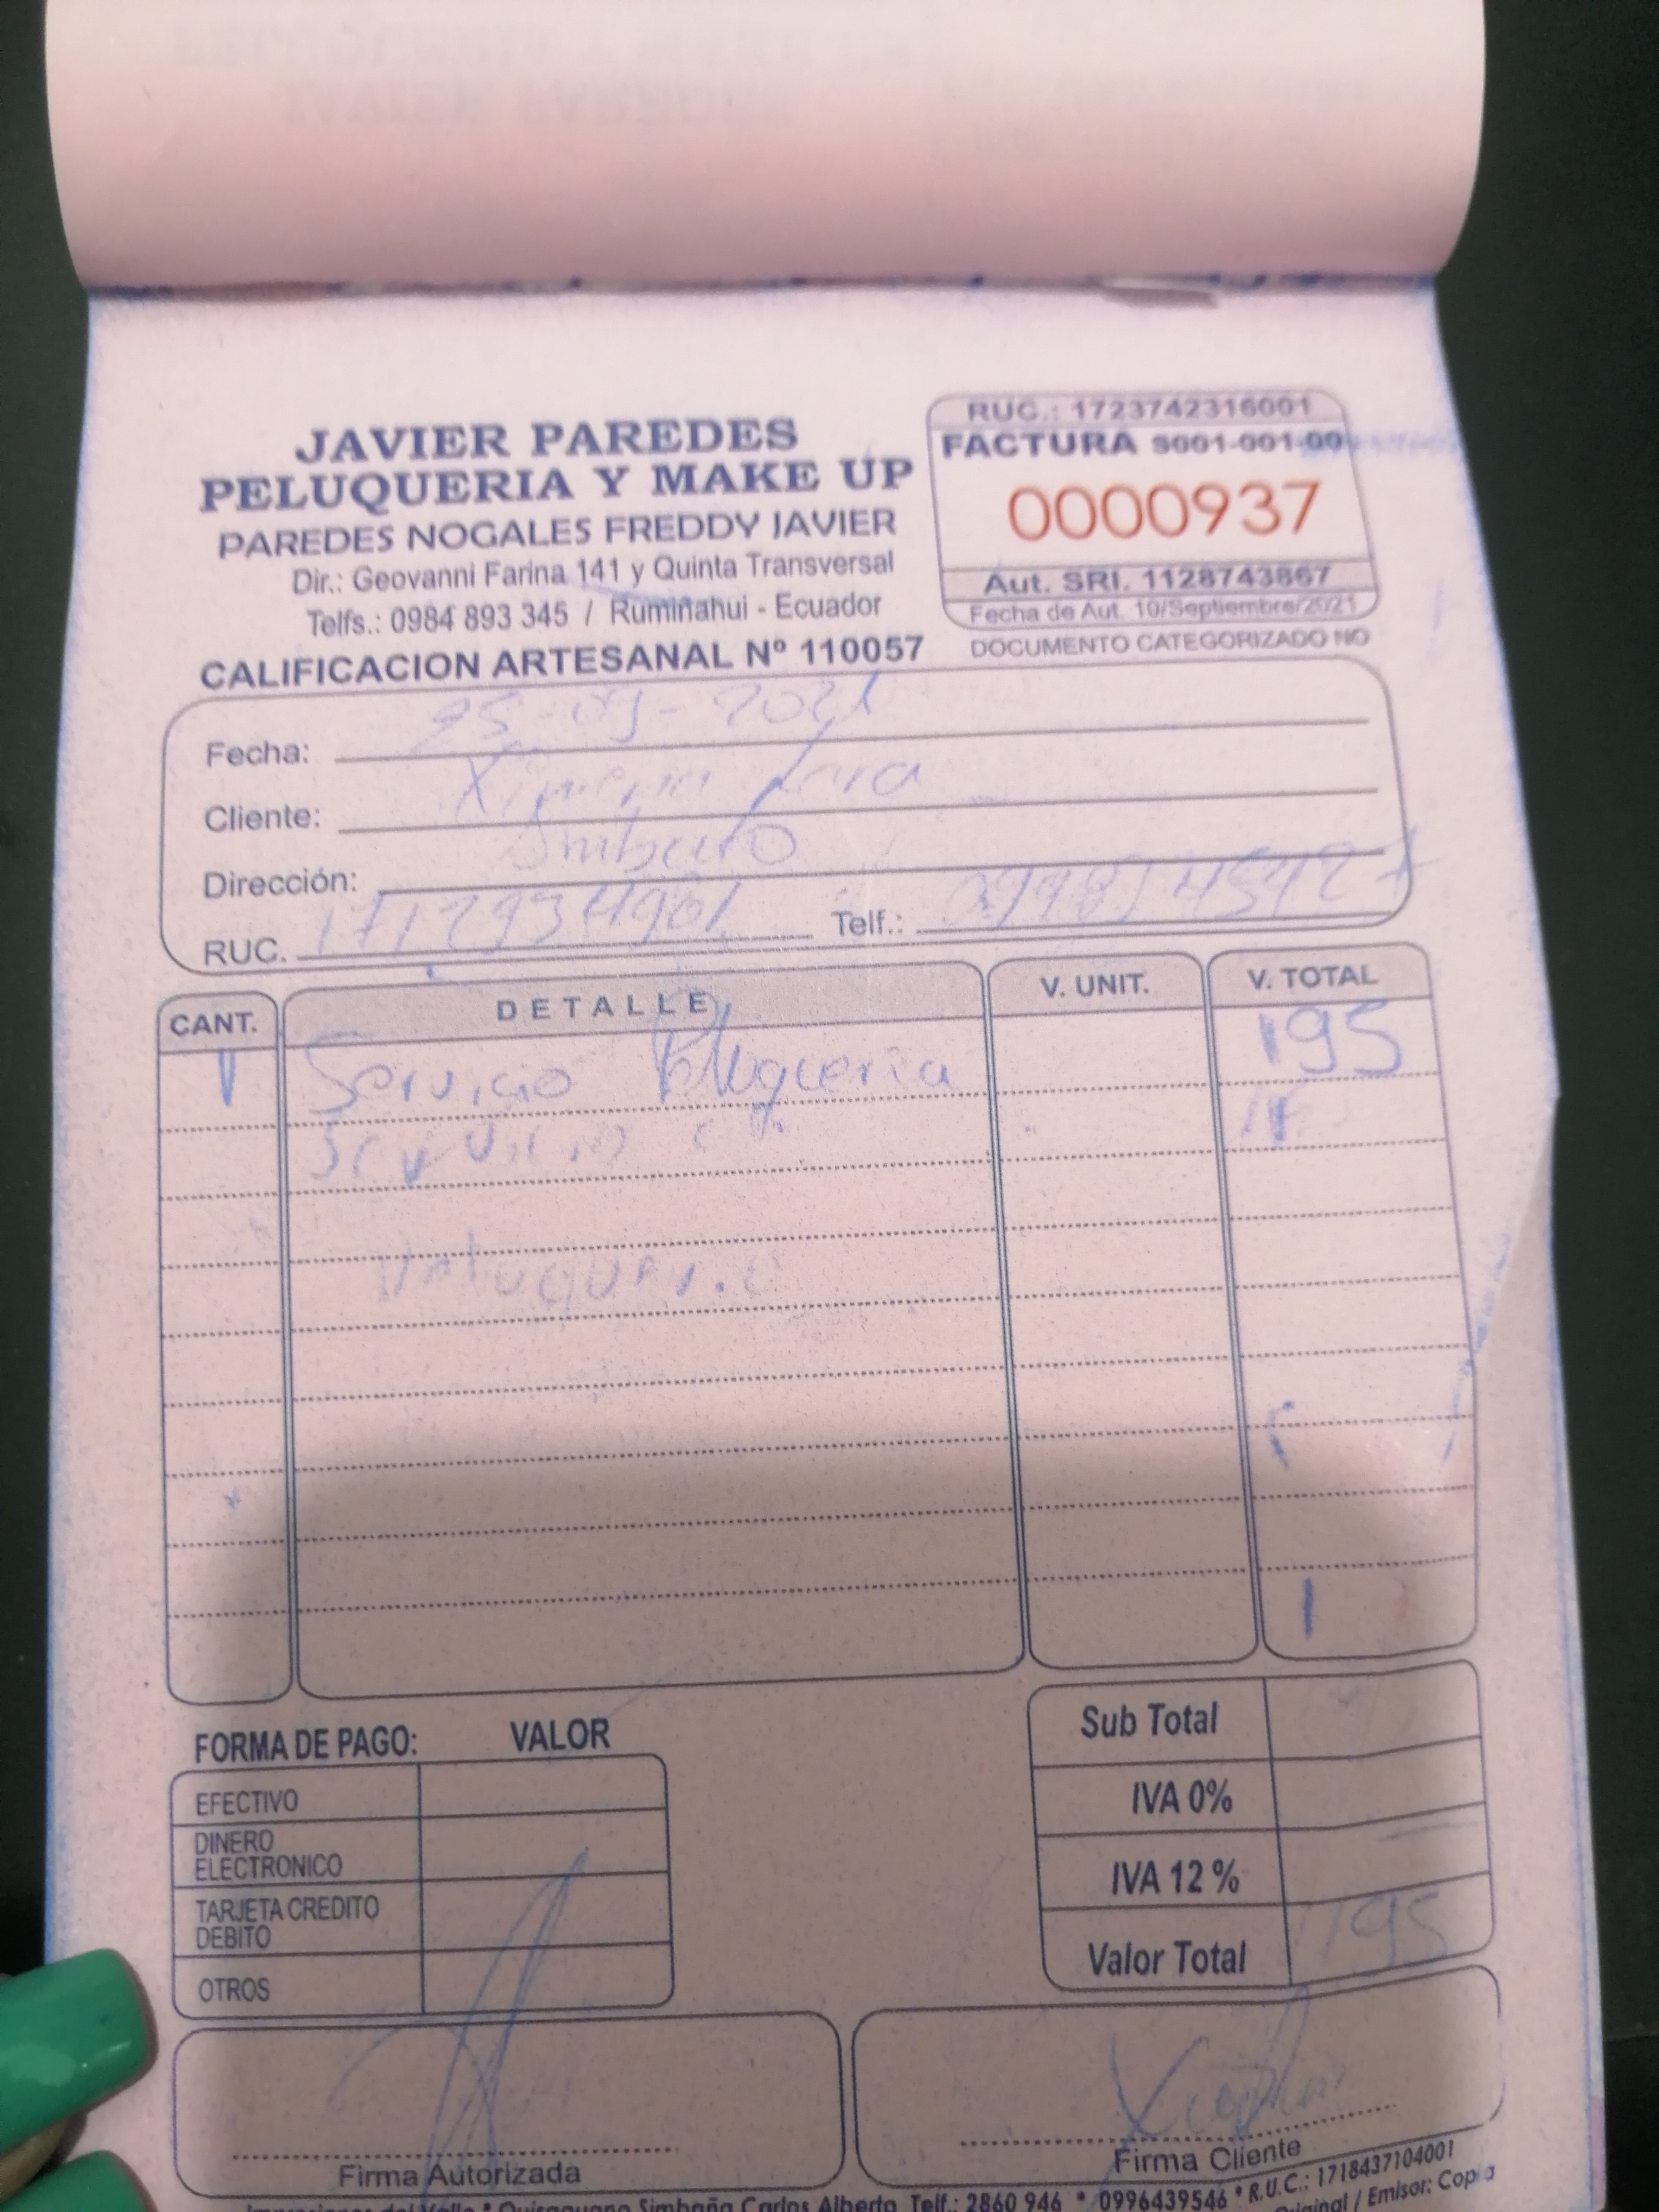 JAVIER PAREDES
PELUQUERIA Y MAKE UP
PAREDES NOGALES FREDDY JAVIER
Dir.: Geovanni Farina 141 y Quinta Transversal
Telfs.: 0984 893 345 / Rumiñahui - Ecuador
CALIFICACION ARTESANAL Nº 110057
RUC.: 1723742316001
FACTURA S001-001-00
0000937
Aut. SRI. 1128743867
Fecha de Aut. 10/Septiembre/2021
DOCUMENTO CATEGORIZADO NO
Fecha: 25-09-2021
Cliente:
Dirección:
RUC. Telf.:
CANT. DETALLE V. UNIT. V. TOTAL
1 Servicio Peluqueria 195
Servicio
FORMA DE PAGO: VALOR
EFECTIVO
DINERO
ELECTRONICO
TARJETA CREDITO
DEBITO
OTROS
Sub Total
IVA 0%
IVA 12 %
Valor Total 195
Firma Autorizada
Firma Cliente
Simbaña Carlos Alberto Telf.: 2860 946 * 0996439546 * R.U.C.: 1718437104001
Original / Emisor: Copia